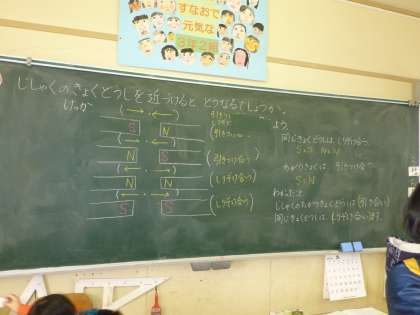 すなおで
元気な
じしゃくのきょくどうしを近づけると どうなるでしょうか。
けっか
S N
引きつけ
N S
(引きつけ合う)
N N
(しりぞけ合う)
S S
(しりぞけ合う)
同じきょくどうしは、しりぞけ合う。
ちがうきょくは、引きつけ合う。
SとN
わかったこと
じしゃくのちがうきょくどうしは引き合い
同じきょくどうしは、しりぞけ合います。